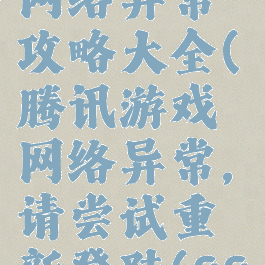 网络异常
攻略大全(
腾讯游戏
网络异常,
请尝试重
新登陆(cs